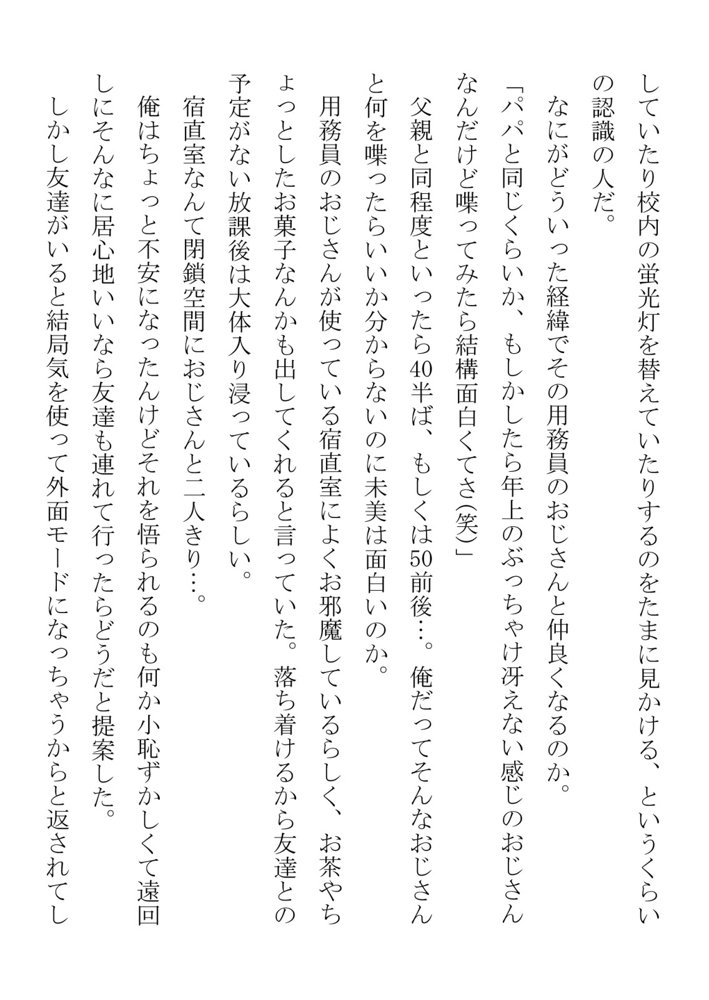 していたり校内の蛍光灯を替えていたりするのをたまに見かける、というくらい
の認識の人だ。
なにがどういった経緯でその用務員のおじさんと仲良くなるのか。
「パパと同じくらいか、もしかしたら年上のぶっちゃけ冴えない感じのおじさん
なんだけど喋ってみたら結構面白くてさ(笑)」
父親と同程度といったら40半ば、もしくは50前後…。俺だってそんなおじさん
と何を喋ったらいいか分からないのに未美は面白いのか。
用務員のおじさんが使っている宿直室によくお邪魔しているらしく、お茶やち
ょっとしたお菓子なんかも出してくれると言っていた。落ち着けるから友達との
予定がない放課後は大体入り浸っているらしい。
宿直室なんて閉鎖空間におじさんと二人きり…。
俺はちょっと不安になったんけどそれを悟られるのも何か小恥ずかしくて遠回
しにそんなに居心地いいなら友達も連れて行ったらどうだと提案した。
しかし友達がいると結局気を使って外面モードになっちゃうからと返されてし